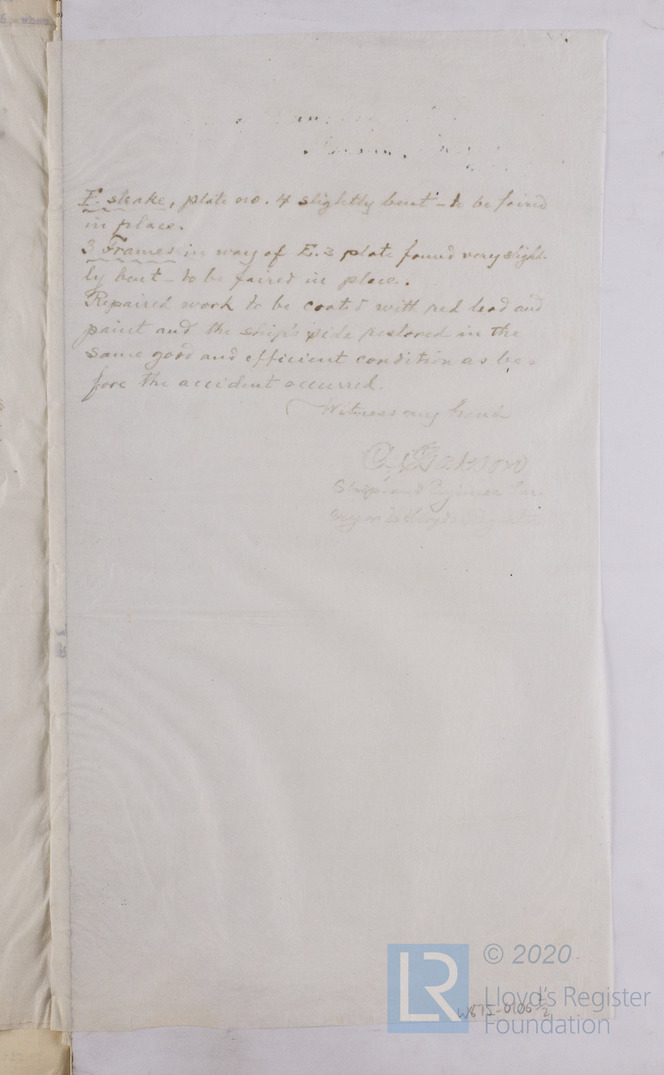 F. strake, plate no. 4 slightly bent - to be faired
in place.
3 Frames in way of E. 3 plate found very slight-
ly bent - to be faired in place.
Repaired work to be coated with red lead and
paint and the ship's side restored in the
same good and efficient condition as be-
fore the accident occurred.
Witness my hand
Ship and Engineer Sur-
veyor to Lloyd's
W875-0106 1/2
LR
© 2020
Lloyd's Register
Foundation